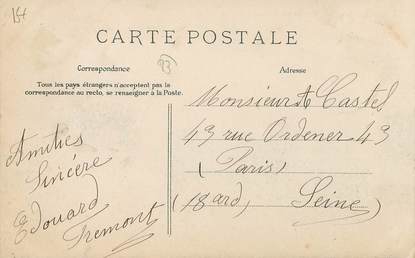 154
CARTE POSTALE
Correspondance
93
Adresse
Tous les pays étrangers n'acceptent pas la
correspondance au recto, se renseigner à la Poste.
Monsieur A Castel
43 rue Ordener 43
(Paris)
(18ard, Seine)
Amitiés
Sincère
Edouard
Fremont